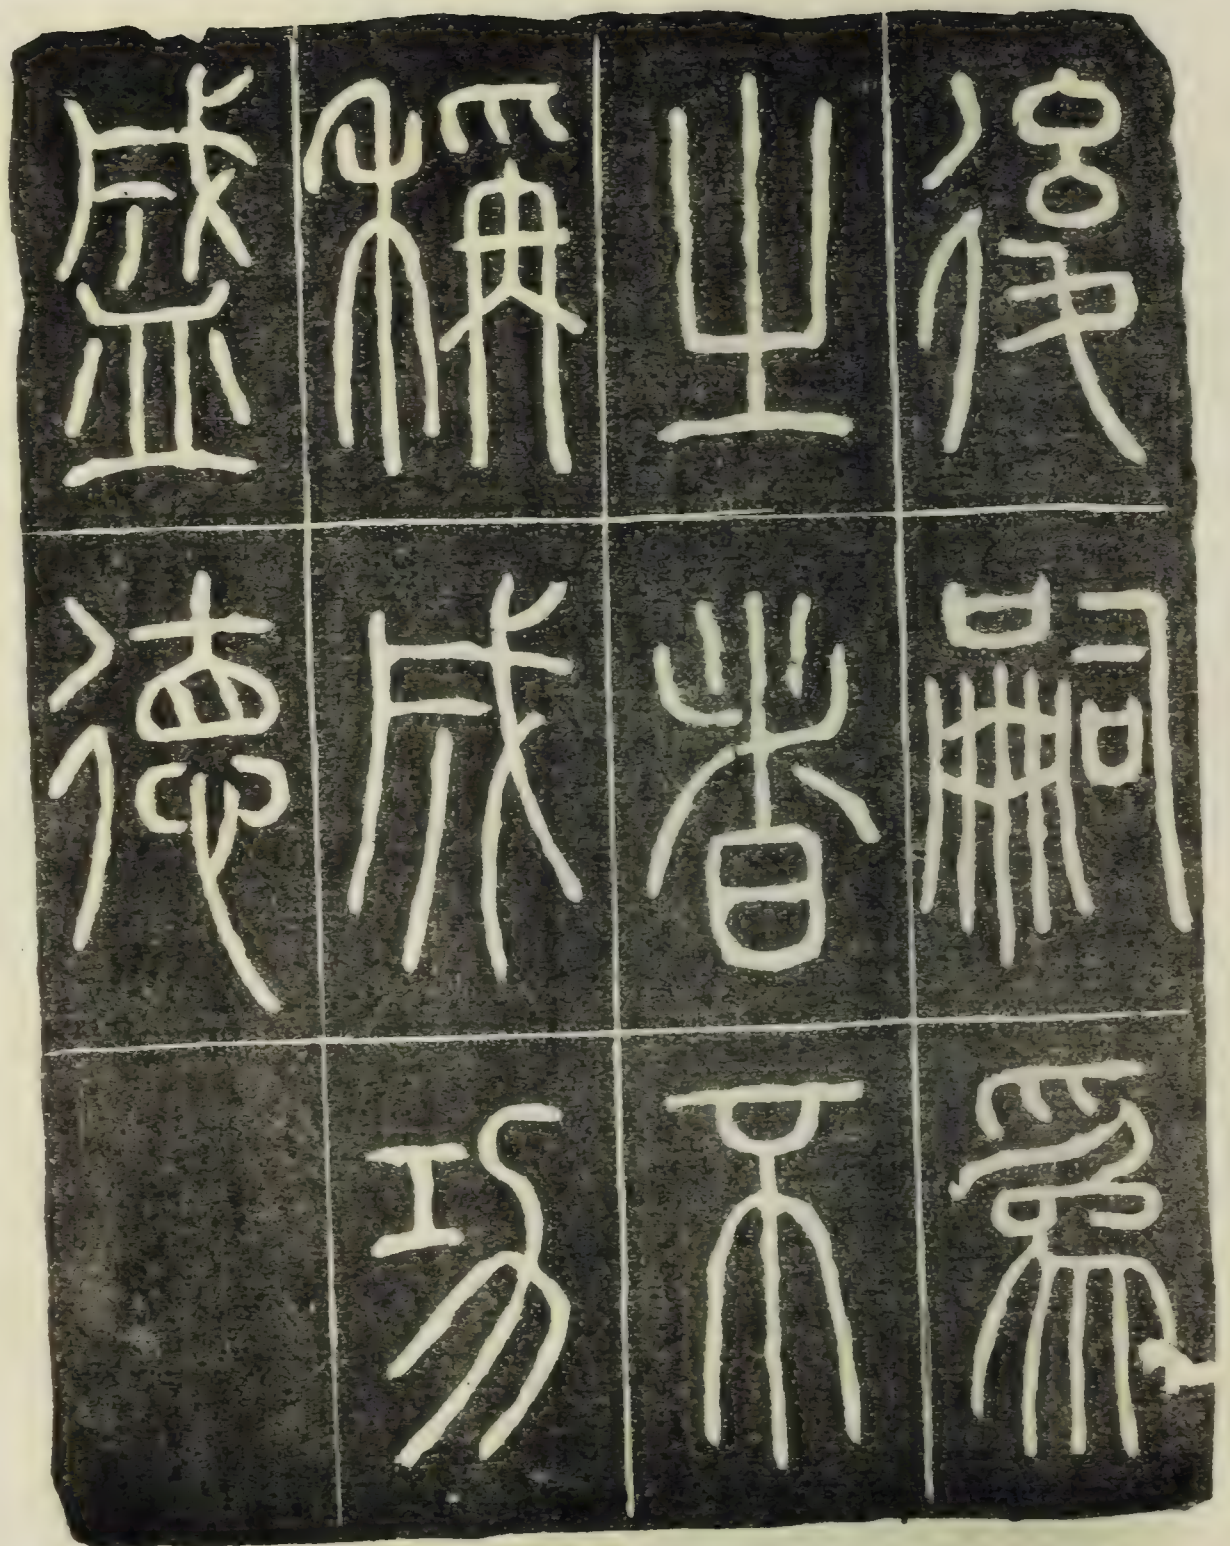 後嗣爲
之者不
稱成功
盛德